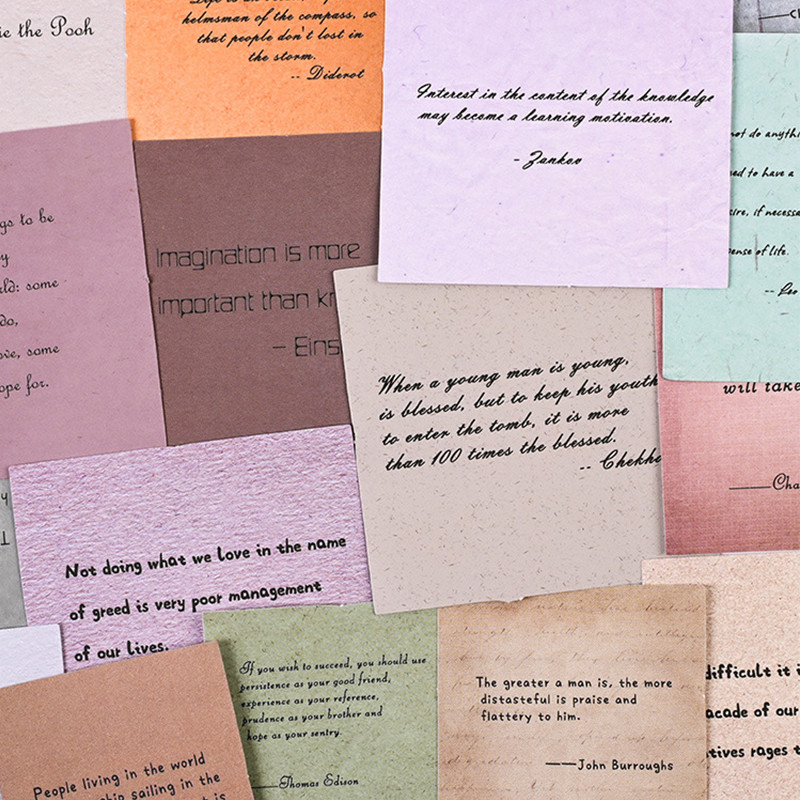 ie the Pooh
helmsman of the compass, so
that people don't lost in
the storm.
-- Diderot
Interest in the content of the knowledge
may become a learning motivation.
- Zankov
not do anythi
ed to have a
ire, if necessa
ense of life.
-- Leo
gs to be
y
ld: some
do,
ove, some
ope for.
Imagination is more
important than kn
- Eins
When a young man is young,
is blessed, but to keep his youth
to enter the tomb, it is more
than 100 times the blessed.
-- Chekhe
will take
——Cha
Not doing what we love in the name
of greed is very poor management
of our lives.
If you wish to succeed, you should use
persistence as your good friend,
experience as your reference,
prudence as your brother and
hope as your sentry.
——Thomas Edison
The greater a man is, the more
distasteful is praise and
flattery to him.
——John Burroughs
difficult it i
acade of our
tives rages t
People living in the world
ship sailing in the
t is